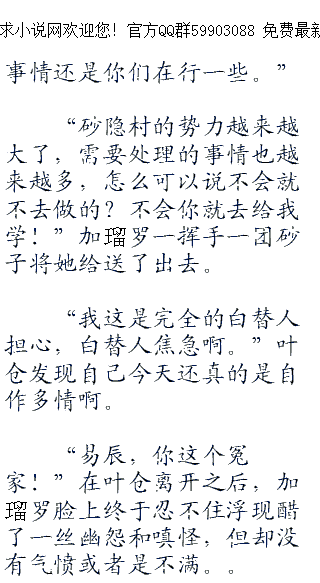 求小说网欢迎您！官方QQ群59903088 免费最新
事情还是你们在行一些。”
“砂隐村的势力越来越
大了，需要处理的事情也越
来越多，怎么可以说不会就
不去做的？不会你就去给我
学！”加瑠罗一挥手一团砂
子将她给送了出去。
“我这是完全的白替人
担心，白替人焦急啊。”叶
仓发现自己今天还真的是自
作多情啊。
“易辰，你这个冤
家！”在叶仓离开之后，加
瑠罗脸上终于忍不住浮现醋
了一丝幽怨和嗔怪，但却没
有气愤或者是不满。。